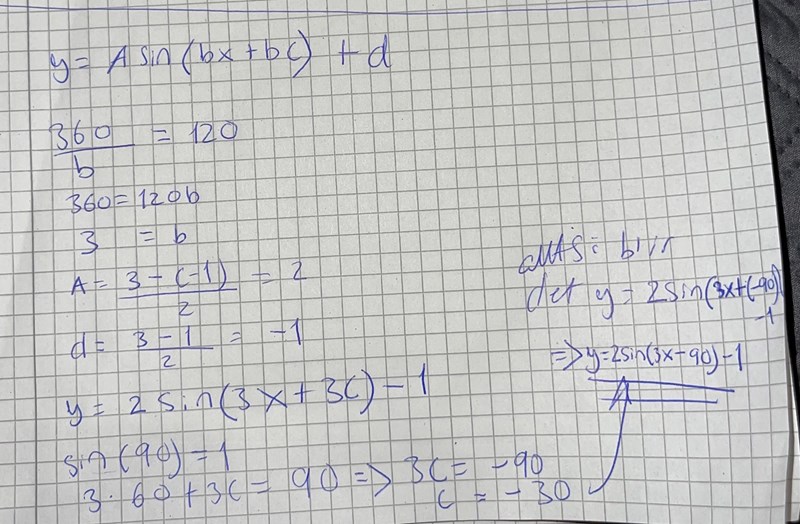 y = A sin(bx + bc) + d
360/b = 120
360 = 120b
3 = b
A = (3-(-1))/2 = 2
d = (3-1)/2 = -1
y = 2 sin(3x + 3c) - 1
sin(90) = 1
3·60 + 3c = 90 => 3c = -90
c = -30
alltså: blir
det y = 2sin(3x+(-90))
-1
=> y=2sin(3x-90)-1